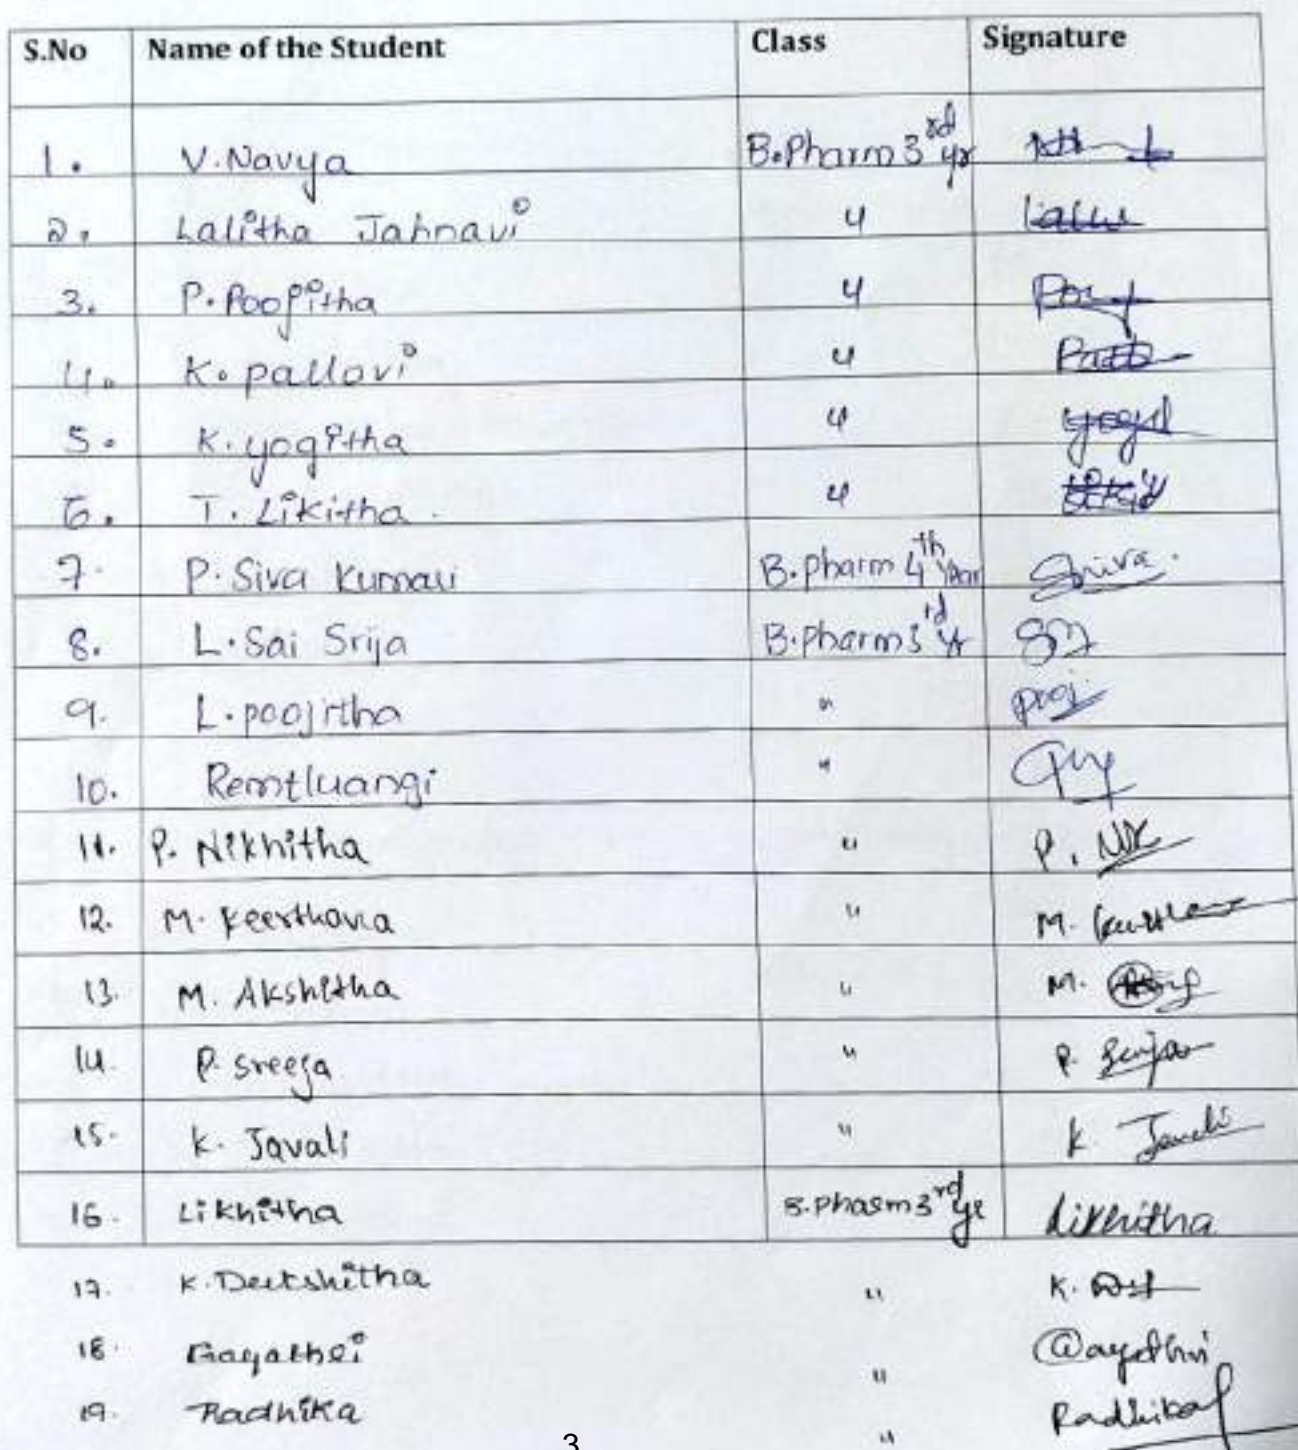 S.No Name of the Student Class Signature
1. V.Navya B.Pharm 3rd yr
2. Lalitha Jahnavi 〃
3. P. Poojitha 〃
4. K. pallavi 〃
5. K. yogitha 〃
6. T. Likitha. 〃
7. P. Siva Kumari B.pharm 4th year Shiva.
8. L. Sai Srija B.pharm 3rd yr
9. L. poojitha 〃 pooj
10. Remtluangi 〃
11. P. Nikhitha 〃 P. Nik
12. M. Keerthana 〃 M.
13. M. Akshitha 〃 M.
14. P. Sreeja 〃 P.
15. K. Javali 〃 K. Javali
16. Likhitha B.Pharm 3rd yr Likhitha
17. K. Deekshitha 〃 K.
18. Gayathri 〃 Gayathri
19. Radhika 〃 Radhika
3